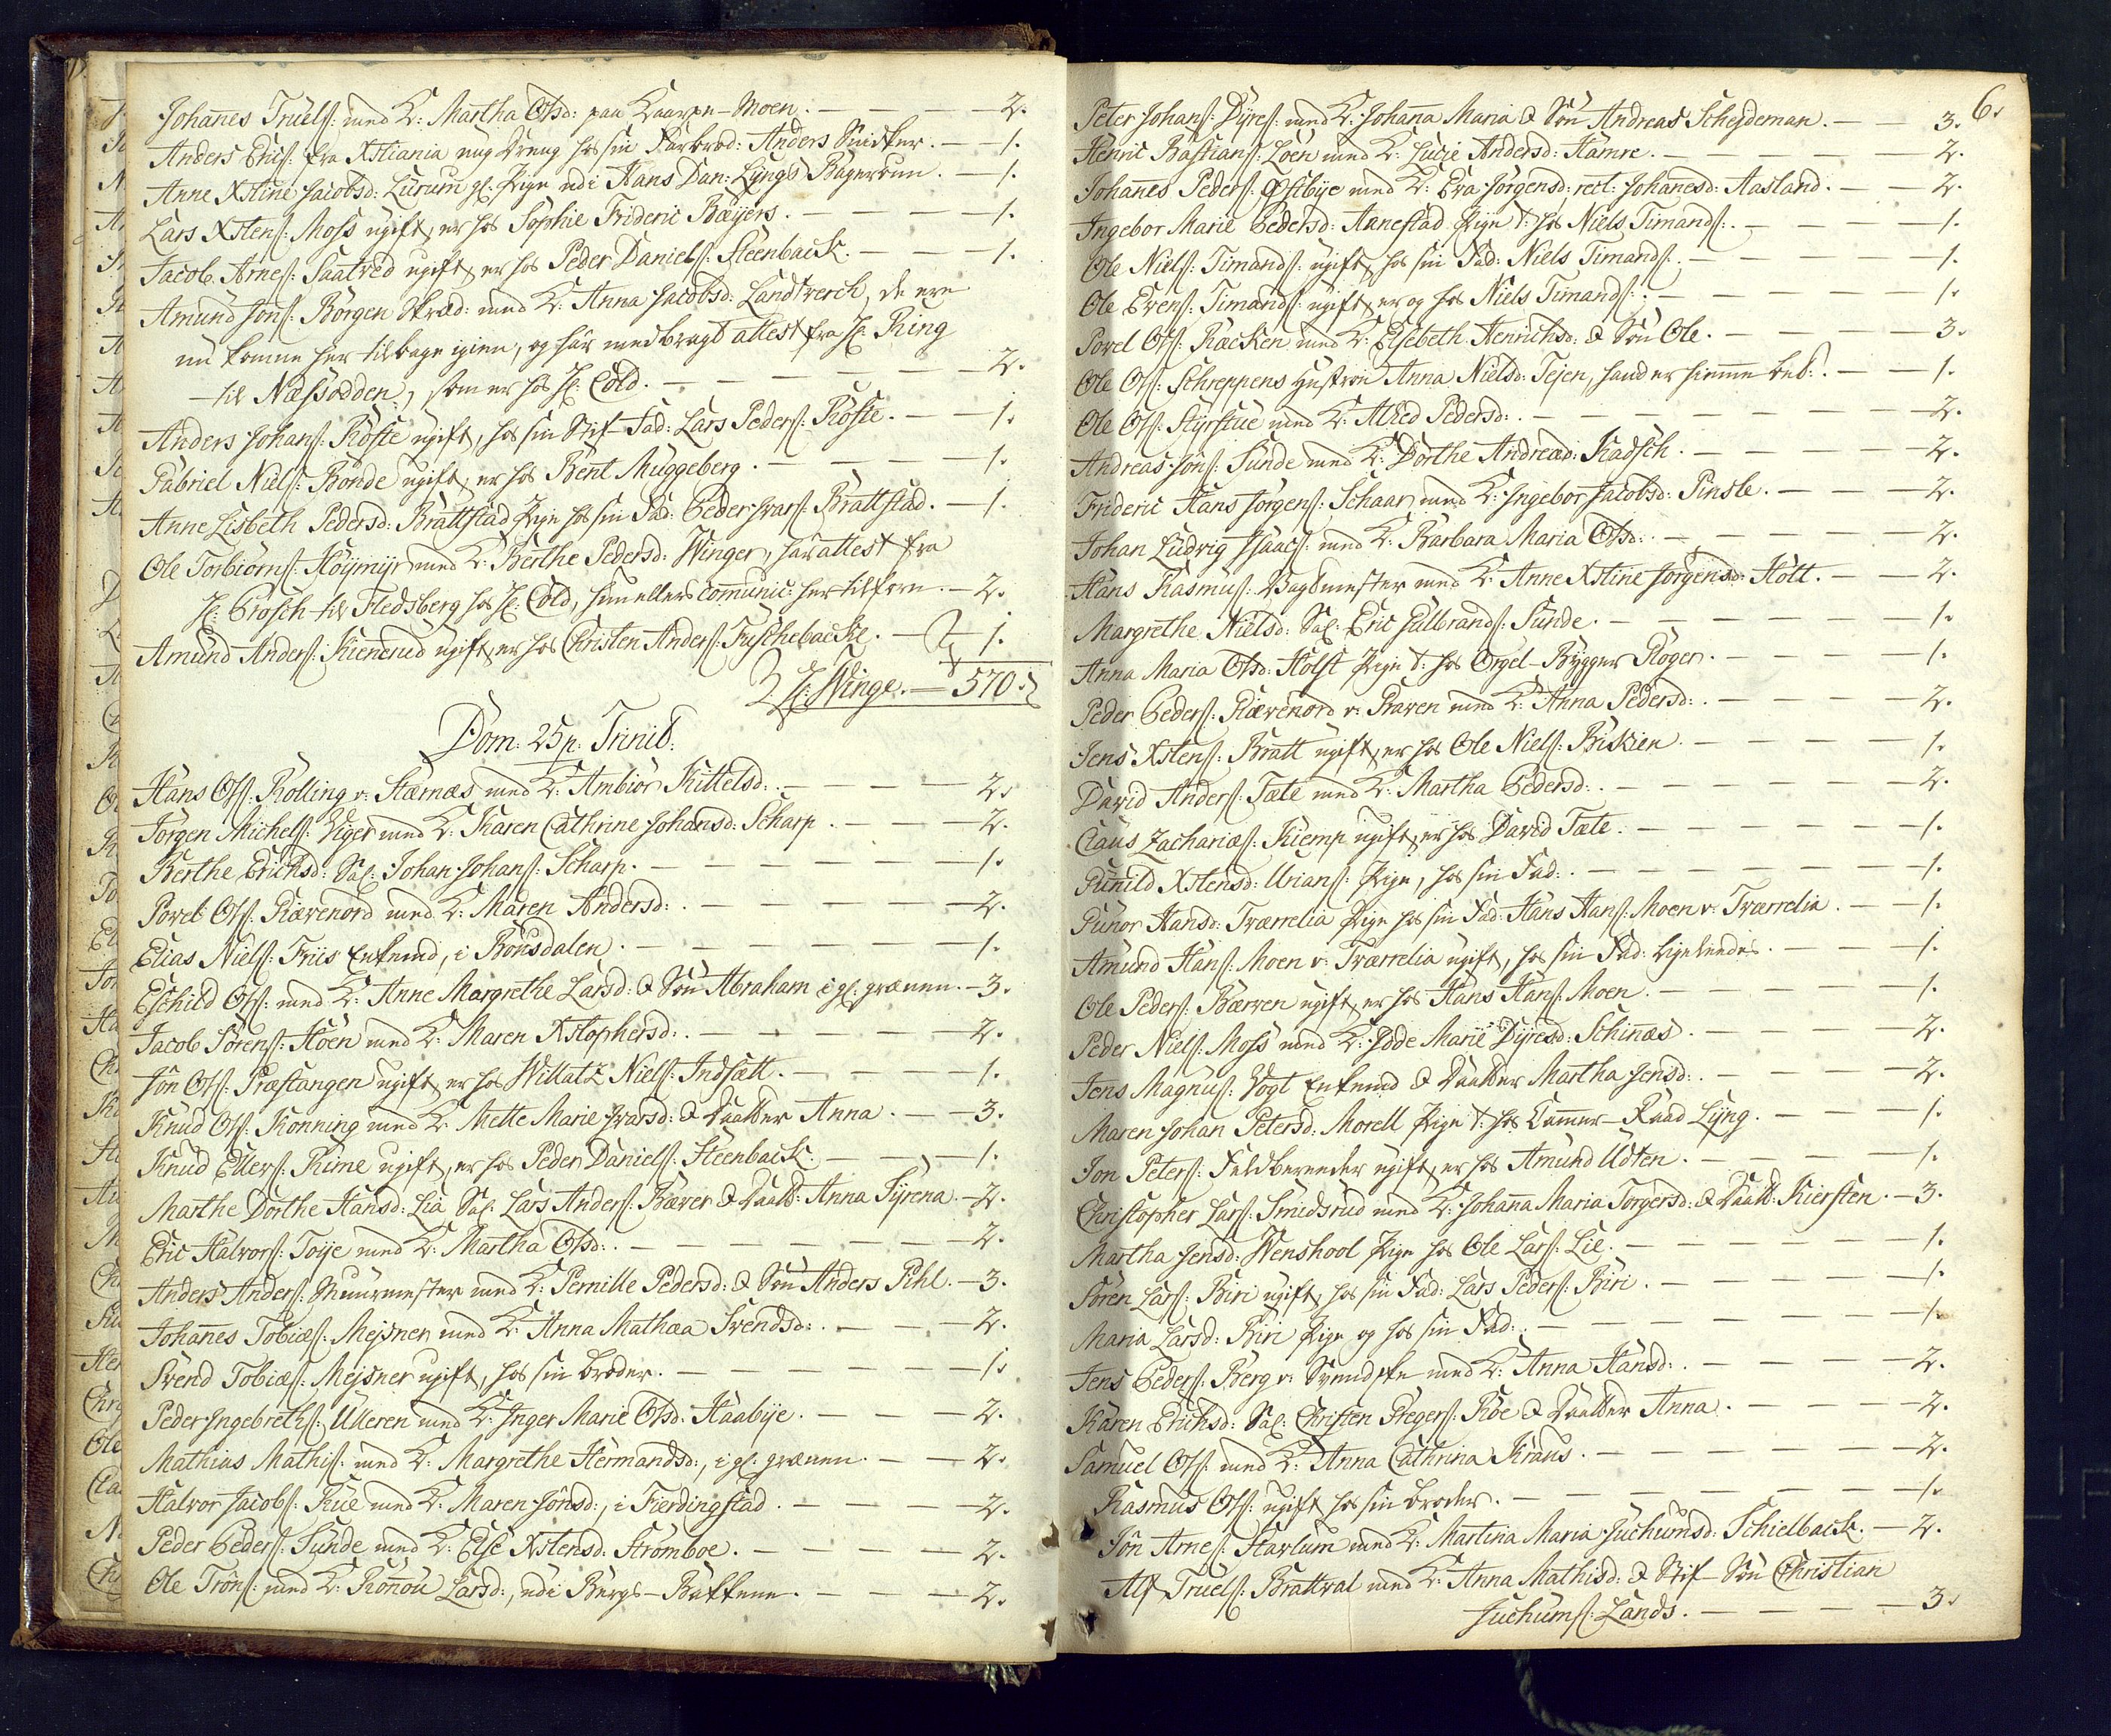 Johanes Truels: med K: Martha Olsd: paa Kaarpe-Moen. — — — — 2.
Anders Erics: fra Xstiania ung Dreng hos sin Farbrod: Anders Snidker. — 1.
Anne Xstine Jacobsd: Lurum gl: Pige udi Hans Dan: Lyngs Bagerbun. — 1.
Lars Xstens: Moss ugift, er hos Sophie Frideric Bæyers. — — — — 1.
Jacob Arnes: Saatved ugift, er hos Peder Daniels: Steenback. — — — 1.
Amund Jons: Börgen Skræd: med K: Anna Jacobsd: Landtverch, de ere
nu komne her tilbage igien, og har medbragt attest fra H: Ring
til Næssodden, som er hos H: Cold. — — — — — — 2.
Anders Johans: Röste ugift, hos sin Stif-Fad: Lars Peders: Röste. — — 1.
Gabriel Niels: Bonde ugift, er hos Bent Muggeberg. — — — — 1.
Anne Lisbeth Pedersd: Brattstad Pige hos sin Fad: Peder Ivars: Brattstad. — 1.
Ole Torbiörns: Höymyr med K: Berthe Pedersd: Winger, har attest fra
H: Brosch til Fledsberg hos H: Cold, hun ellers comunic: her tilforn. — 2.
Amund Anders: Kienerud ugift, er hos Christen Anders: Fuschebacke. — 1.
H: Winge. — 570.
Dom: 25 p: Trinit:
Hans Ols: Rolling v: Stærnæs med K: Ambiör Kittelsd: . — — — — 2.
Jörgen Michels: Viger med K: Karen Cathrine Johansd: Scharp. — — — 2.
Berthe Erichsd: Sal: Johan Johans: Scharp. — — — — — — 1.
Povel Ols: Kiævenord med K: Maren Andersd: . — — — — — 2.
Elias Niels: Friis Enkemd, i Bonsdalen. — — — — — — 1.
Eschild Ols: med K: Anne Margrethe Larsd: & Sön Abraham i gl: grænen. — 3.
Jacob Sörens: Höen med K: Maren Xstophersd: . — — — — — 2.
Jön Ols: Præstangen ugift, er hos Wittatz Niels: Indsætt. — — — — 1.
Knud Ols: Konning med K: Mette Marie Ivarsd: & Daatter Anna. — — 3.
Knud Ellers: Rime ugift, er hos Peder Daniels: Steenback. — — — 1.
Marthe Dorthe Hansd: Lia Sal: Lars Anders: Bæver & Daatt: Anna Syrena. — 2.
Eric Halvors: Toye med K: Martha Olsd: . — — — — — — 2.
Anders Anders: Muurmester med K: Pernille Pedersd: & Sön Anders Pihl. — 3.
Johanes Tobiæs: Mejsner med K: Anna Mathæa Svendsd: . — — — 2.
Svend Tobiæs: Mejsner ugift, hos sin broder. — — — — — — 1.
Peder Ingebreths: Ulleren med K: Inger Marie Olsd: Haabye. — — — 2.
Mathias Mathis: med K: Margrethe Hermandsd:, i gl: grænen. — — 2.
Halvor Jacobs: Kue med K: Maren Jönsd:, i Fierdingstad. — — — — 2.
Peder Peders: Sunde med K: Else Xstensd: Strömboe. — — — — 2.
Ole Tröns: med K: Ronnou Larsd:, udi Bergs-Bakkene. — — — — 2.
6.
Peter Johans: Dyres: med K: Johana Maria & Sön Andreas Schejdeman. — — 3.
Henric Bastians: Loen med K: Lucie Andersd: Hamre. — — — — — 2.
Johanes Peders: Östbye med K: Eva Jörgensd: rect: Johanesd: Aasland. — — 2.
Ingebor Marie Pedersd: Annestad Pige t: hos Niels Timands: . — — — 1.
Ole Niels: Timands: ugift, hos sin Fad: Niels Timands: . — — — — 1.
Ole Evens: Timands: ugift, er og hos Niels Timands: . — — — — — 1.
Povel Ols: Racken med K: Elsebeth Henrichsd: & Sön Ole. — — — — 3.
Ole Ols: Schreppens Hustroe Anna Nielsd: Tejen, hand er hiemme bes: . — — 1.
Ole Ols: Styrstue med K: Alhed Pedersd: . — — — — — — — 2.
Andreas Jöns: Sunde med K: Dorthe Andreæd: Kadsch. — — — — 2.
Frideric Hans Jörgens: Schaar med K: Ingebor Jacobsd: Pinsle. — — — 2.
Johan Ludvig Isaacs: med K: Barbara Maria Olsd: . — — — — — 2.
Hans Rasmus: Vagtmester med K: Anne Xstine Jörgensd: Holt. — — 2.
Margrethe Nielsd: Sal: Eric Gulbrands: Sunde. — — — — — — 1.
Anna Maria Olsd: Holst Pige t: hos Orgel-Bygger Roger. — — — — 1.
Peder Peders: Kiævenord v: Raven med K: Anna Pedersd: . — — — — 2.
Jens Xstens: Bratt ugift, er hos Ole Niels: Briskien. — — — — — 1.
David Anders: Tæte med K: Martha Pedersd: . — — — — — — 2.
Claus Zachariæs: Kiemp ugift, er hos David Tæte. — — — — — — 1.
Gunild Xstensd: Urians: Pige, hos sin Fad: . — — — — — — — 1.
Gunor Hansd: Tværrelia Pige hos sin Fad: Hans Hans: Moen v: Tværrelia. — — 1.
Amund Hans: Moen v: Tværrelia ugift, hos sin Fad: ligeledes. — — — — 1.
Ole Peders: Bærven ugift, er hos Hans Hans: Moen. — — — — — 1.
Peder Niels: Moss med K: Idde Marie Dyresd: Schinæs. — — — — — 2.
Jens Magnus: Vogt Enkemd & Daatter Martha Jensd: . — — — — — 2.
Maren Johan Petersd: Morell Pige t: hos Kammer-Raad Lyng. — — — 1.
Jon Peters: Feldbereeder ugift, er hos Amund Udten. — — — — — 1.
Christopher Lars: Smidsrud med K: Johana Maria Torgersd: & Daatt: Kiersten. — 3.
Martha Jensd: Wenshool Pige hos Ole Lars: Lie. — — — — — — 1.
Sören Lars: Biri ugift, hos sin Fad: Lars Peders: Biri. — — — — — 1.
Maria Larsd: Biri Pige og hos sin Fad: . — — — — — — — 1.
Jens Peders: Berg v: Svendske med K: Anna Hansd: . — — — — — 2.
Karen Erichsd: Sal: Christen Gregers: Roe & Daatter Anna. — — — — 2.
Samuel Ols: med K: Anna Cathrina Kraus. — — — — — — 2.
Rasmus Ols: ugift hos sin broder. — — — — — — — — 1.
Jön Arnes: Starlum med K: Martina Maria Juchumsd: Schielback. — 2.
Alf Truels: Brattval med K: Anna Mathisd: & Stif-Sön Christian
Juchums: Lands. — — — — — 3.